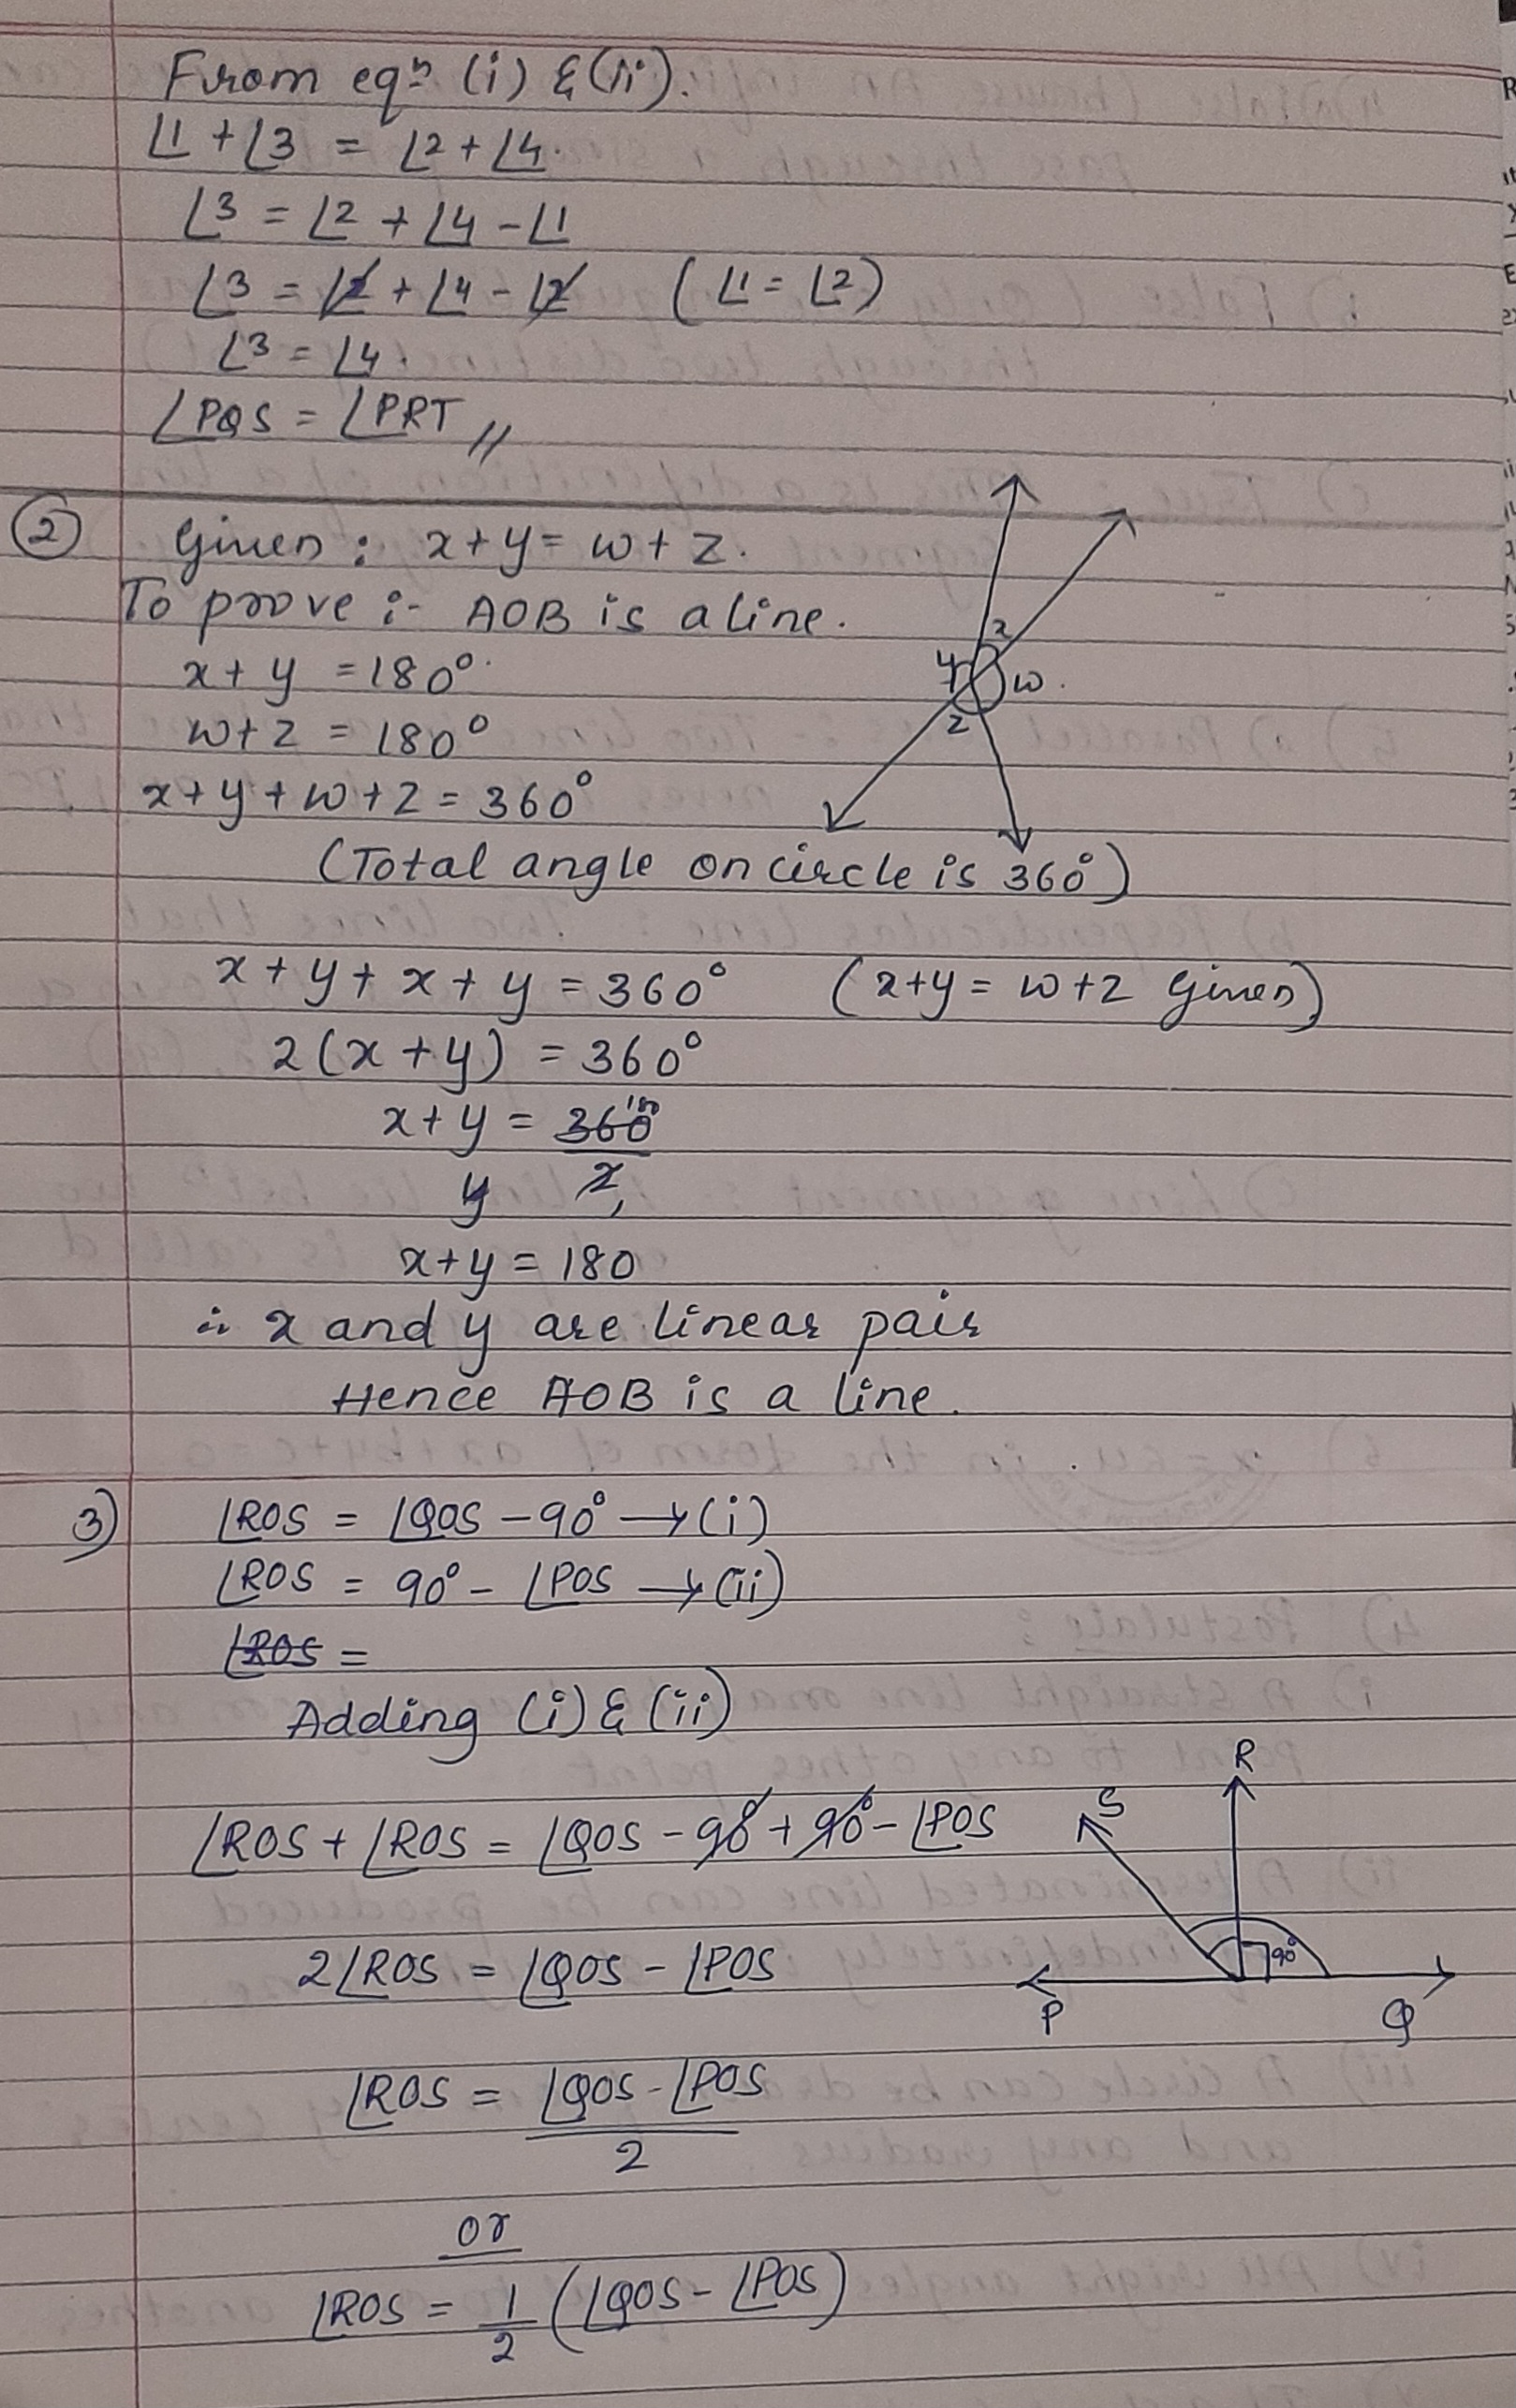 From eqn (i) & (ii).
∠1 + ∠3 = ∠2 + ∠4.
∠3 = ∠2 + ∠4 - ∠1
∠3 = ∠2 + ∠4 - ∠2 (∠1 = ∠2)
∠3 = ∠4.
∠PQS = ∠PRT //
② Given : x+y = w+z.
To prove :- AOB is a line.
x + y = 180°
w+z = 180°
x+y+w+z = 360°
x
y
w
z
(Total angle on circle is 360°)
x + y + x + y = 360° (x+y = w+z Given)
2(x + y) = 360°
x + y = 360
y 2
x+y = 180
∴ x and y are linear pair
Hence AOB is a line.
3) ∠ROS = ∠QOS - 90° → (i)
∠ROS = 90° - ∠POS → (ii)
∠ROS =
Adding (i) & (ii)
∠ROS + ∠ROS = ∠QOS - 90° + 90° - ∠POS
R
S
90°
P
Q
2∠ROS = ∠QOS - ∠POS
∠ROS = ∠QOS - ∠POS
2
or
∠ROS = 1/2 (∠QOS - ∠POS)